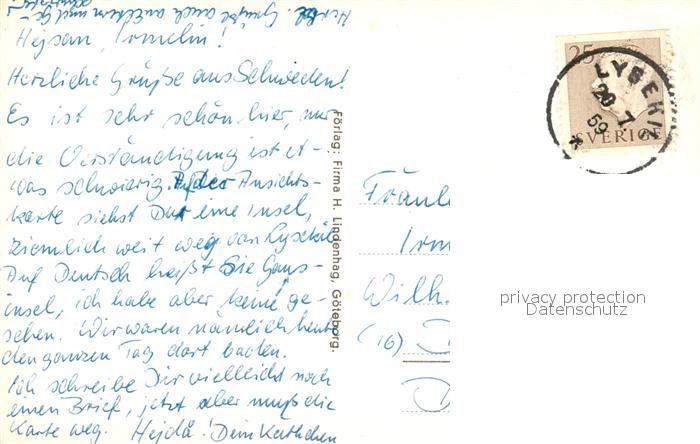 Herzl. Grüße auch an Eltern und Ge-
schwister!
Hejsan, Irmelin!
Herzliche Grüße aus Schweden!
Es ist sehr schön hier, nur
die Verständigung ist et-
was schwierig. Auf der Ansichts-
karte siehst Du eine Insel,
ziemlich weit weg von Lysekil.
Auf Deutsch heißt sie Gans-
insel, ich habe aber keine ge-
sehen. Wir waren nämlich heute
den ganzen Tag dort baden.
Ich schreibe Dir vielleicht noch
einen Brief, jetzt aber muß die
Karte weg. Hejdå! Dein Kathchen
Förlag: Firma H. Lindenhag, Göteborg.
25
SVERIGE
LYSEKI
20 7
59
Fräul
Irm
Wilh.
(16) D
D
privacy protection
Datenschutz